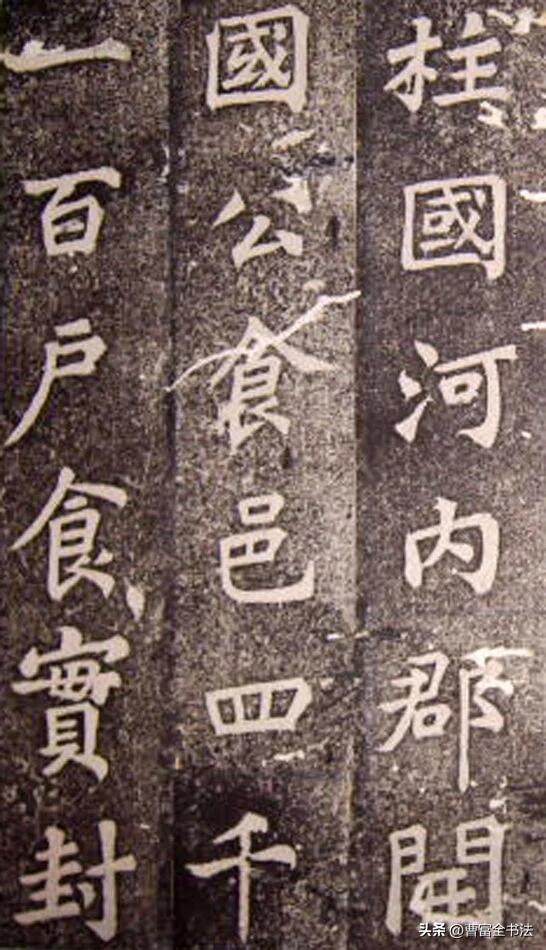 柱國河內郡開
國公食邑四千
一百戶食實封
头条 @曹富全书法